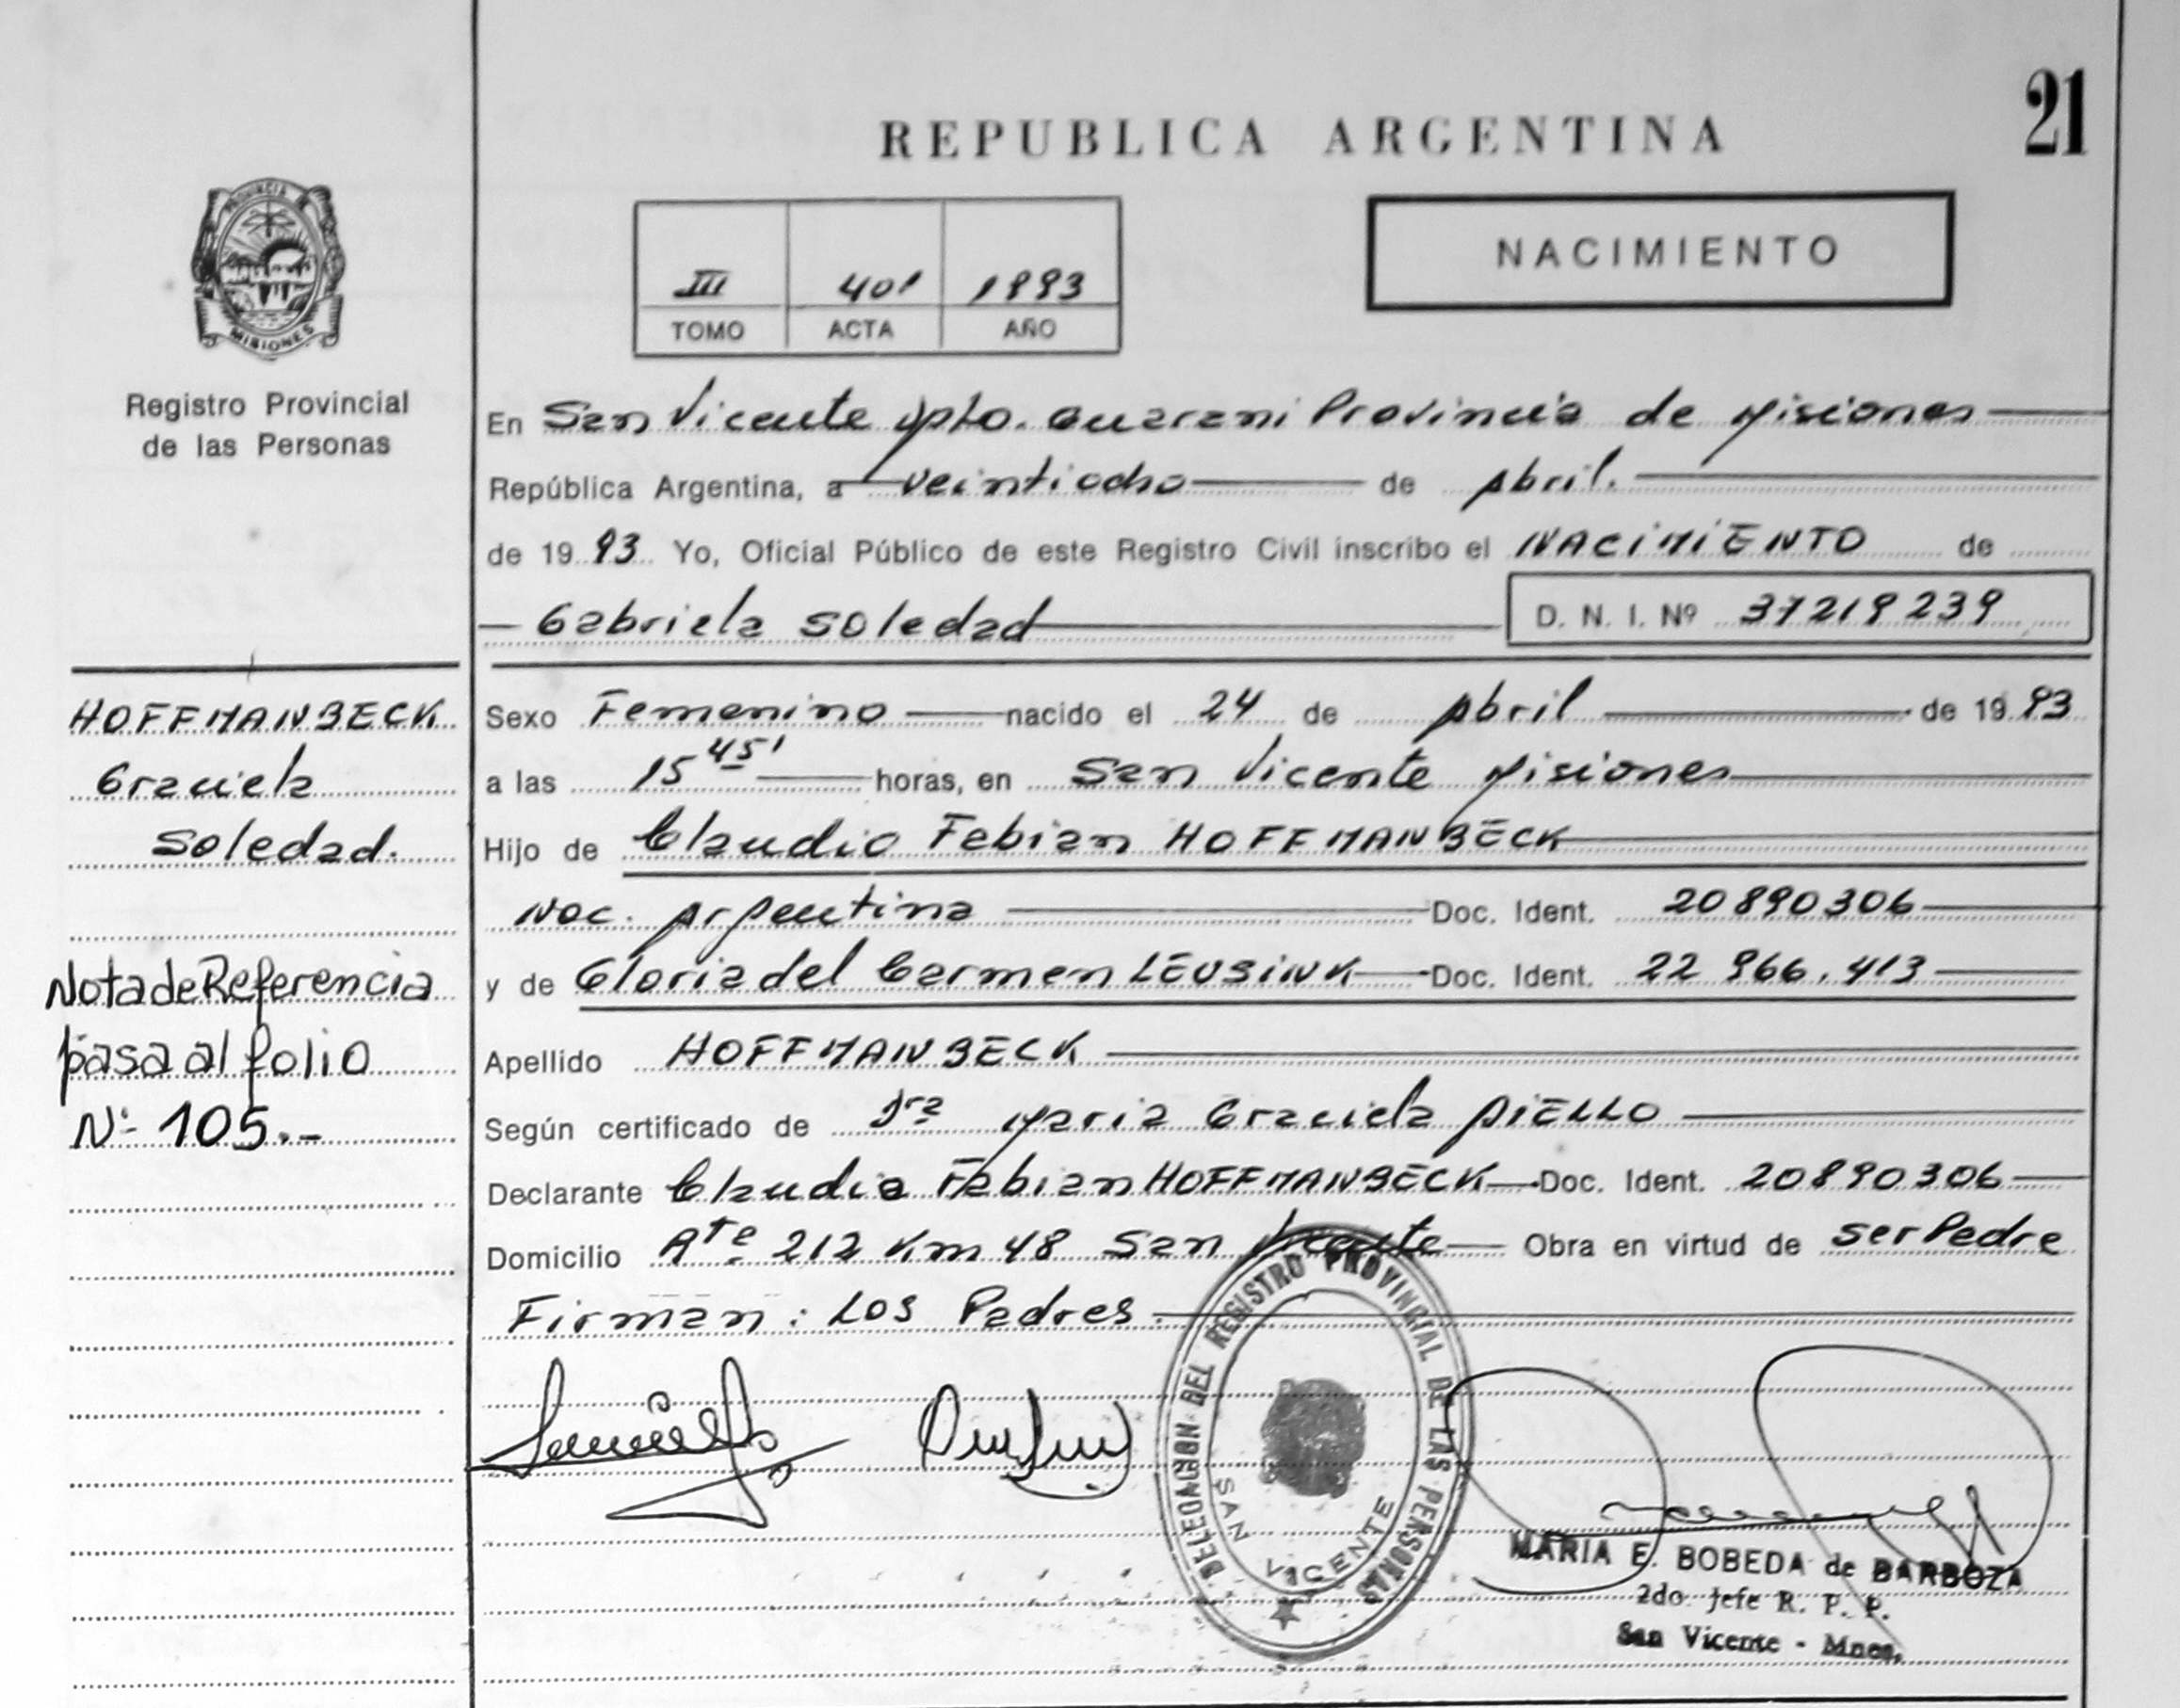 21
REPUBLICA ARGENTINA
PROVINCIA DE
MISIONES
Registro Provincial
de las Personas
III 401 1993
TOMO ACTA AÑO
NACIMIENTO
En San Vicente Dpto. Guarani Provincia de Misiones
República Argentina, a veintiocho de Abril.
de 19 93 Yo, Oficial Público de este Registro Civil inscribo el NACIMIENTO de
Gabriela Soledad D. N. I. Nº 37219239
HOFFMANBECK
Graciela
Soledad.
Nota de Referencia
pasa al folio
Nº 105.-
Sexo Femenino nacido el 24 de Abril de 19 93
a las 15 45' horas, en San Vicente Misiones
Hijo de Claudio Fabian HOFFMANBECK
Nac. Argentina Doc. Ident. 20890306
y de Gloria del Carmen LEUSINK Doc. Ident. 22 966.413
Apellido HOFFMANBECK
Según certificado de Dra Maria Graciela AIELLO
Declarante Claudio Fabian HOFFMANBECK Doc. Ident. 20890306
Domicilio Rte 212 Km 48 San Vicente Obra en virtud de ser Padre
Firman: Los Padres.
DELEGACION DEL REGISTRO PROVINCIAL DE LAS PERSONAS
SAN VICENTE
MARIA E. BOBEDA de BARBOZA
2do. Jefe R. P. P.
San Vicente - Mnes.